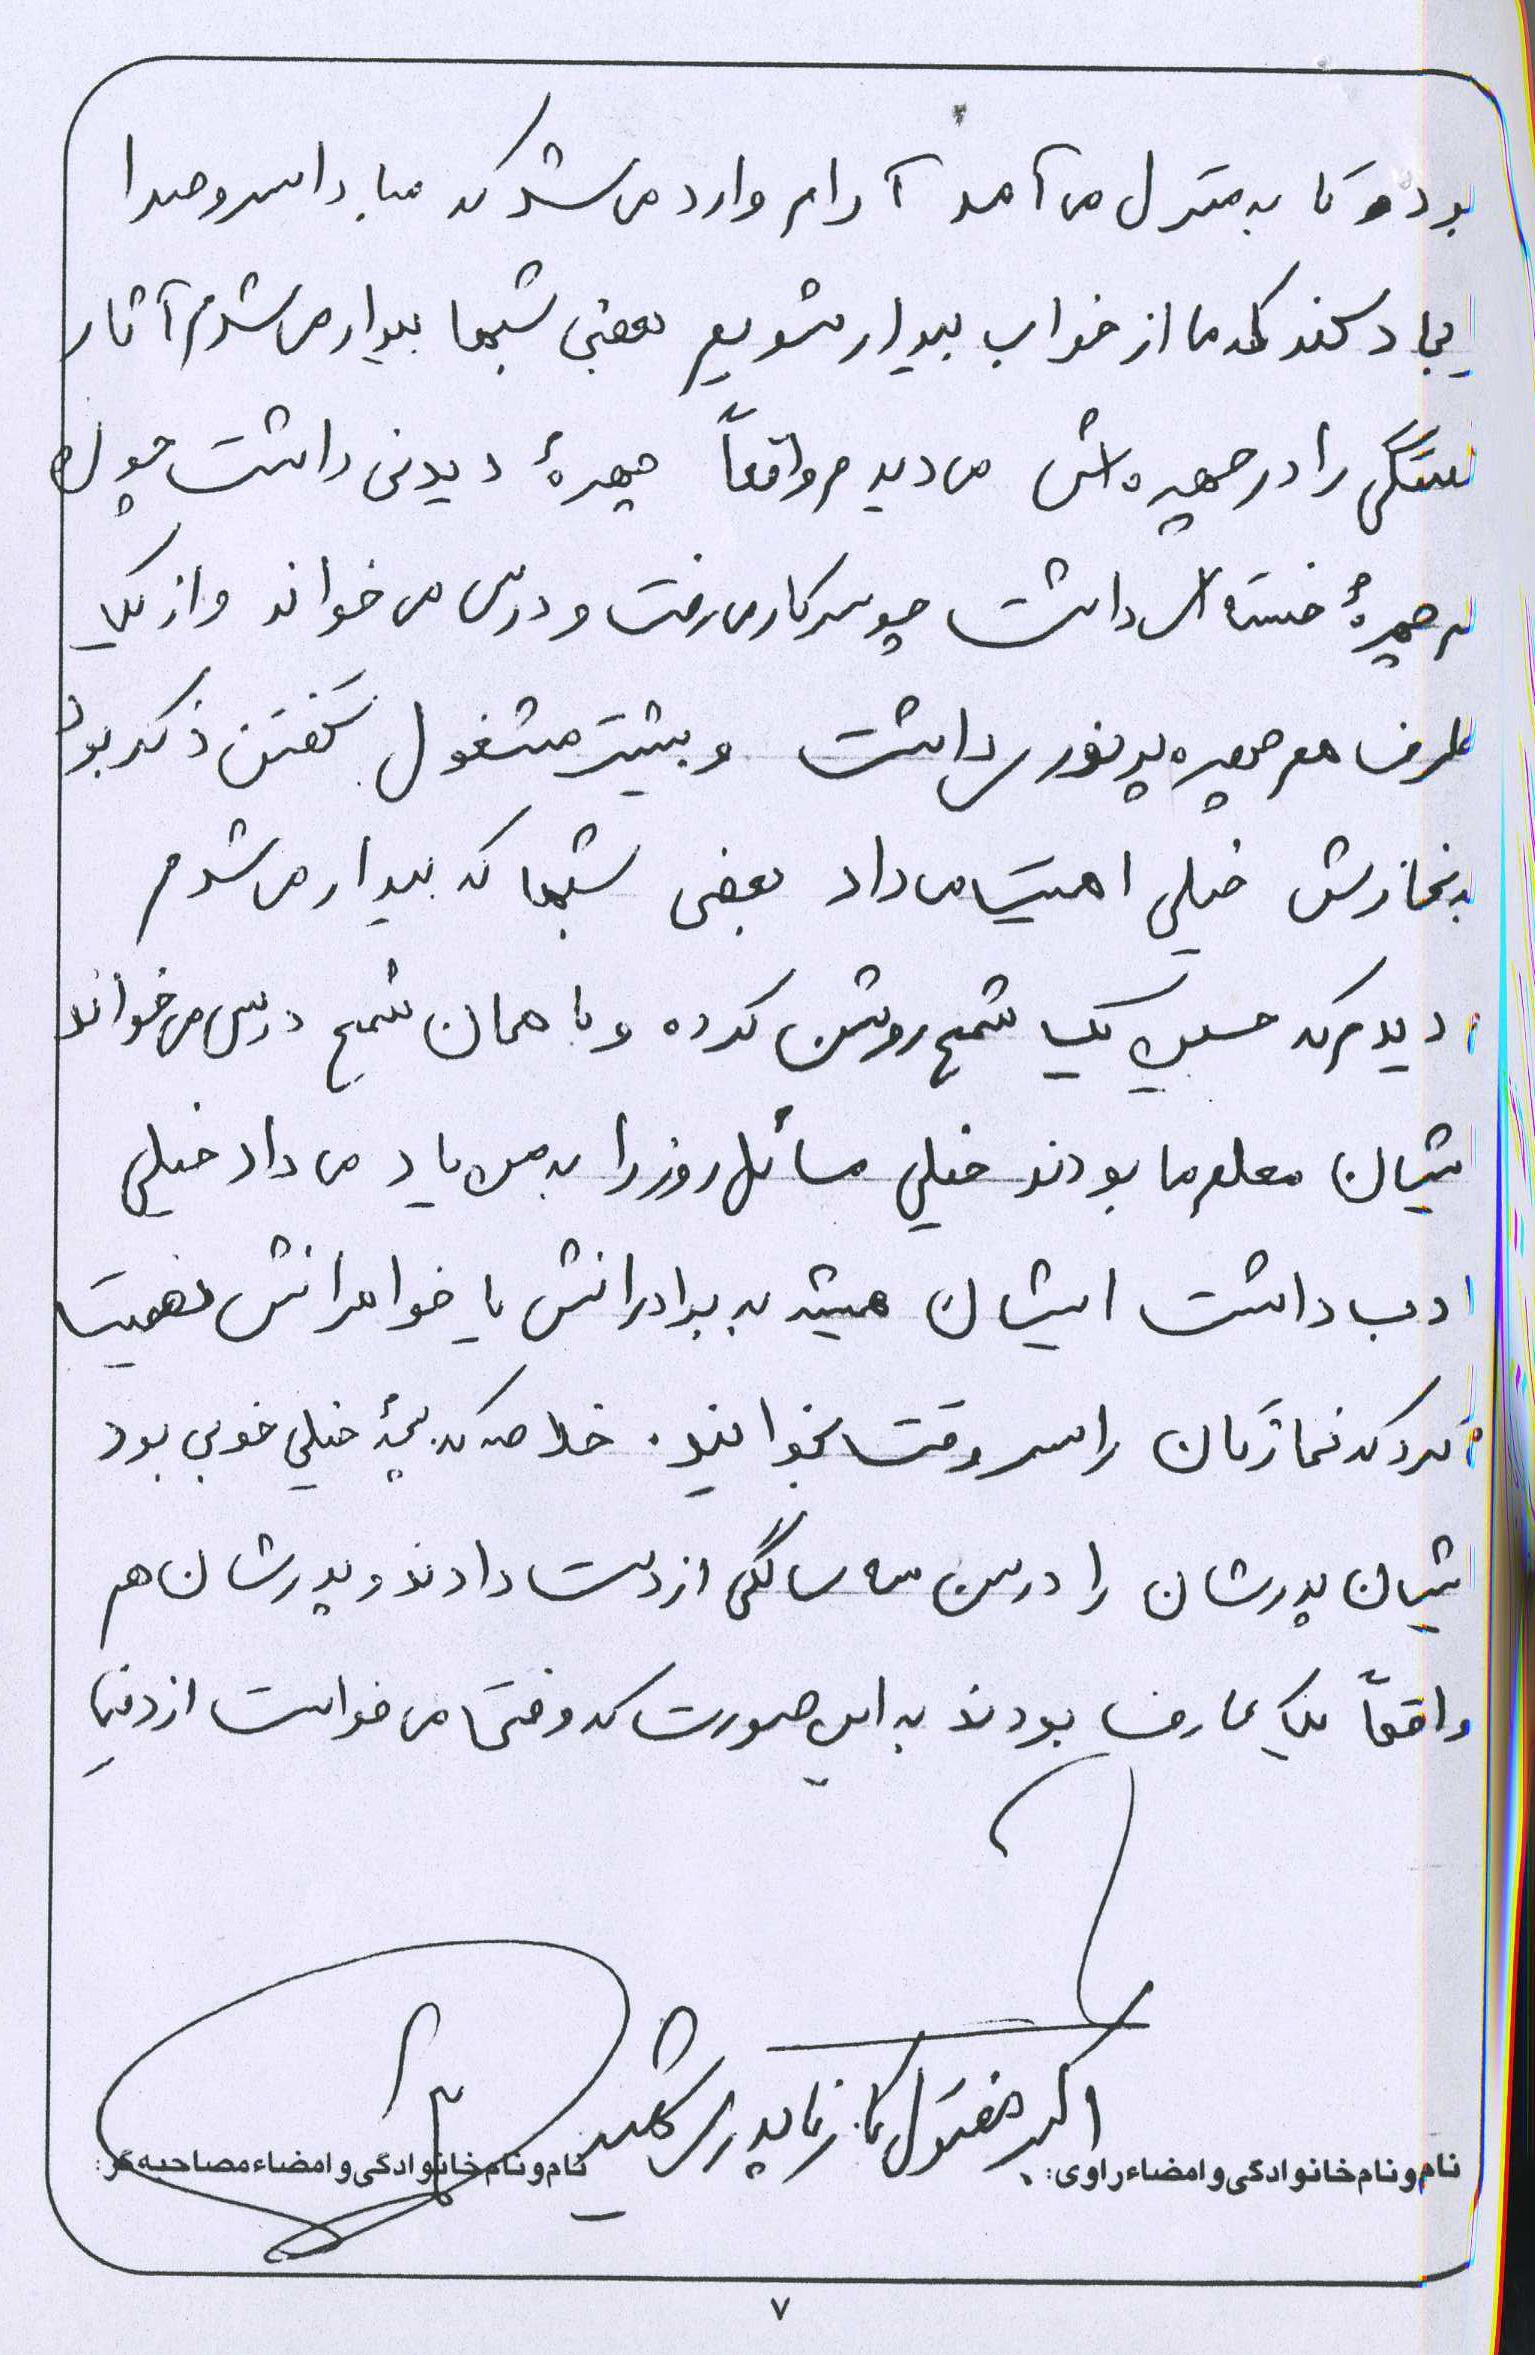 بود و تا به منزل می آمد آرام وارد می شد که مبادا سر و صدا
یجاد کند که ما از خواب بیدار شویم بعضی شبها بیدار می شدم آثار
ستگی را در چهره اش می دیدم واقعاً چهرهٔ دیدنی داشت چون
چهرهٔ خسته ای داشت چون سر کار می رفت و درس می خواند و از یک
طرف هم چهره پر نوری داشت و بیشتر مشغول گفتن ذکر بود
به نمازش خیلی اهمیت می داد بعضی شبها که بیدار می شدم
دیدم که حسین یک شمع روشن کرده و با همان شمع درس می خواند
یشان معلم ما بودند خیلی مسائل روز را به من یاد می داد خیلی
ادب داشت ایشان همیشه به برادرانش یا خواهرانش نصیحت
کرد که نمازتان را سر وقت بخوانید. خلاصه که بچهٔ خیلی خوبی بود
یشان پدرشان را در سن سه سالگی از دست دادند و پدرشان هم
واقعاً یک عارف بودند به این صورت که وقتی می خواست از دنیا
نام و نام خانوادگی و امضاء راوی:
نام و نام خانوادگی و امضاء مصاحبه گر:
۷